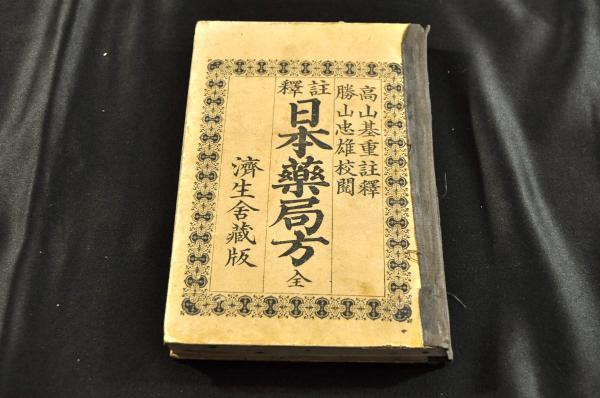 高山基重註釋
勝山忠雄校閲
註釋
日本藥局方 全
濟生舍藏版